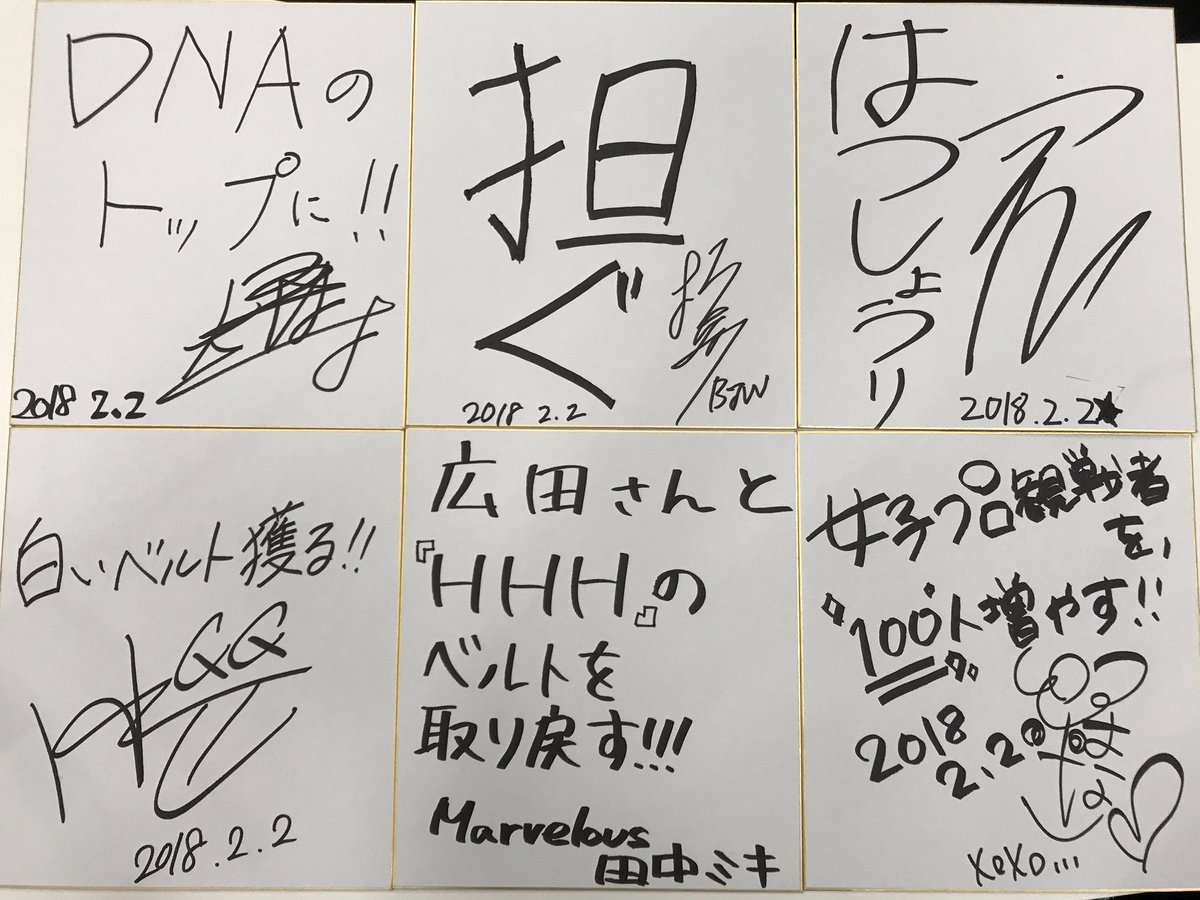 DNAの
トップに!!
2018 2.2
担
ぐ
BJW
2018 2.2
はつしょうり
2018.2.2★
白いベルト獲る!!
2018.2.2
広田さんと
『HHH』の
ベルトを
取り戻す!!!
Marvelous
田中ミキ
女子プロ観戦者
を,
100人増やす!!
2018
2.2
xoxo...